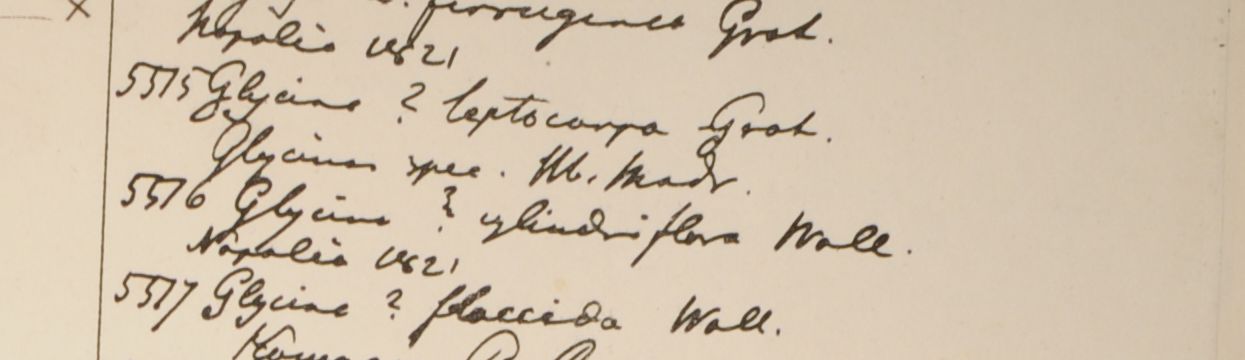 ferruginea Grah.
Napalia 1821
5515 Glycine ? leptocarpa Grah.
Glycines spec. Hb. Madr.
5516 Glycine ? cylindriflora Wall.
Napalia 1821
5517 Glycine ? flaccida Wall.